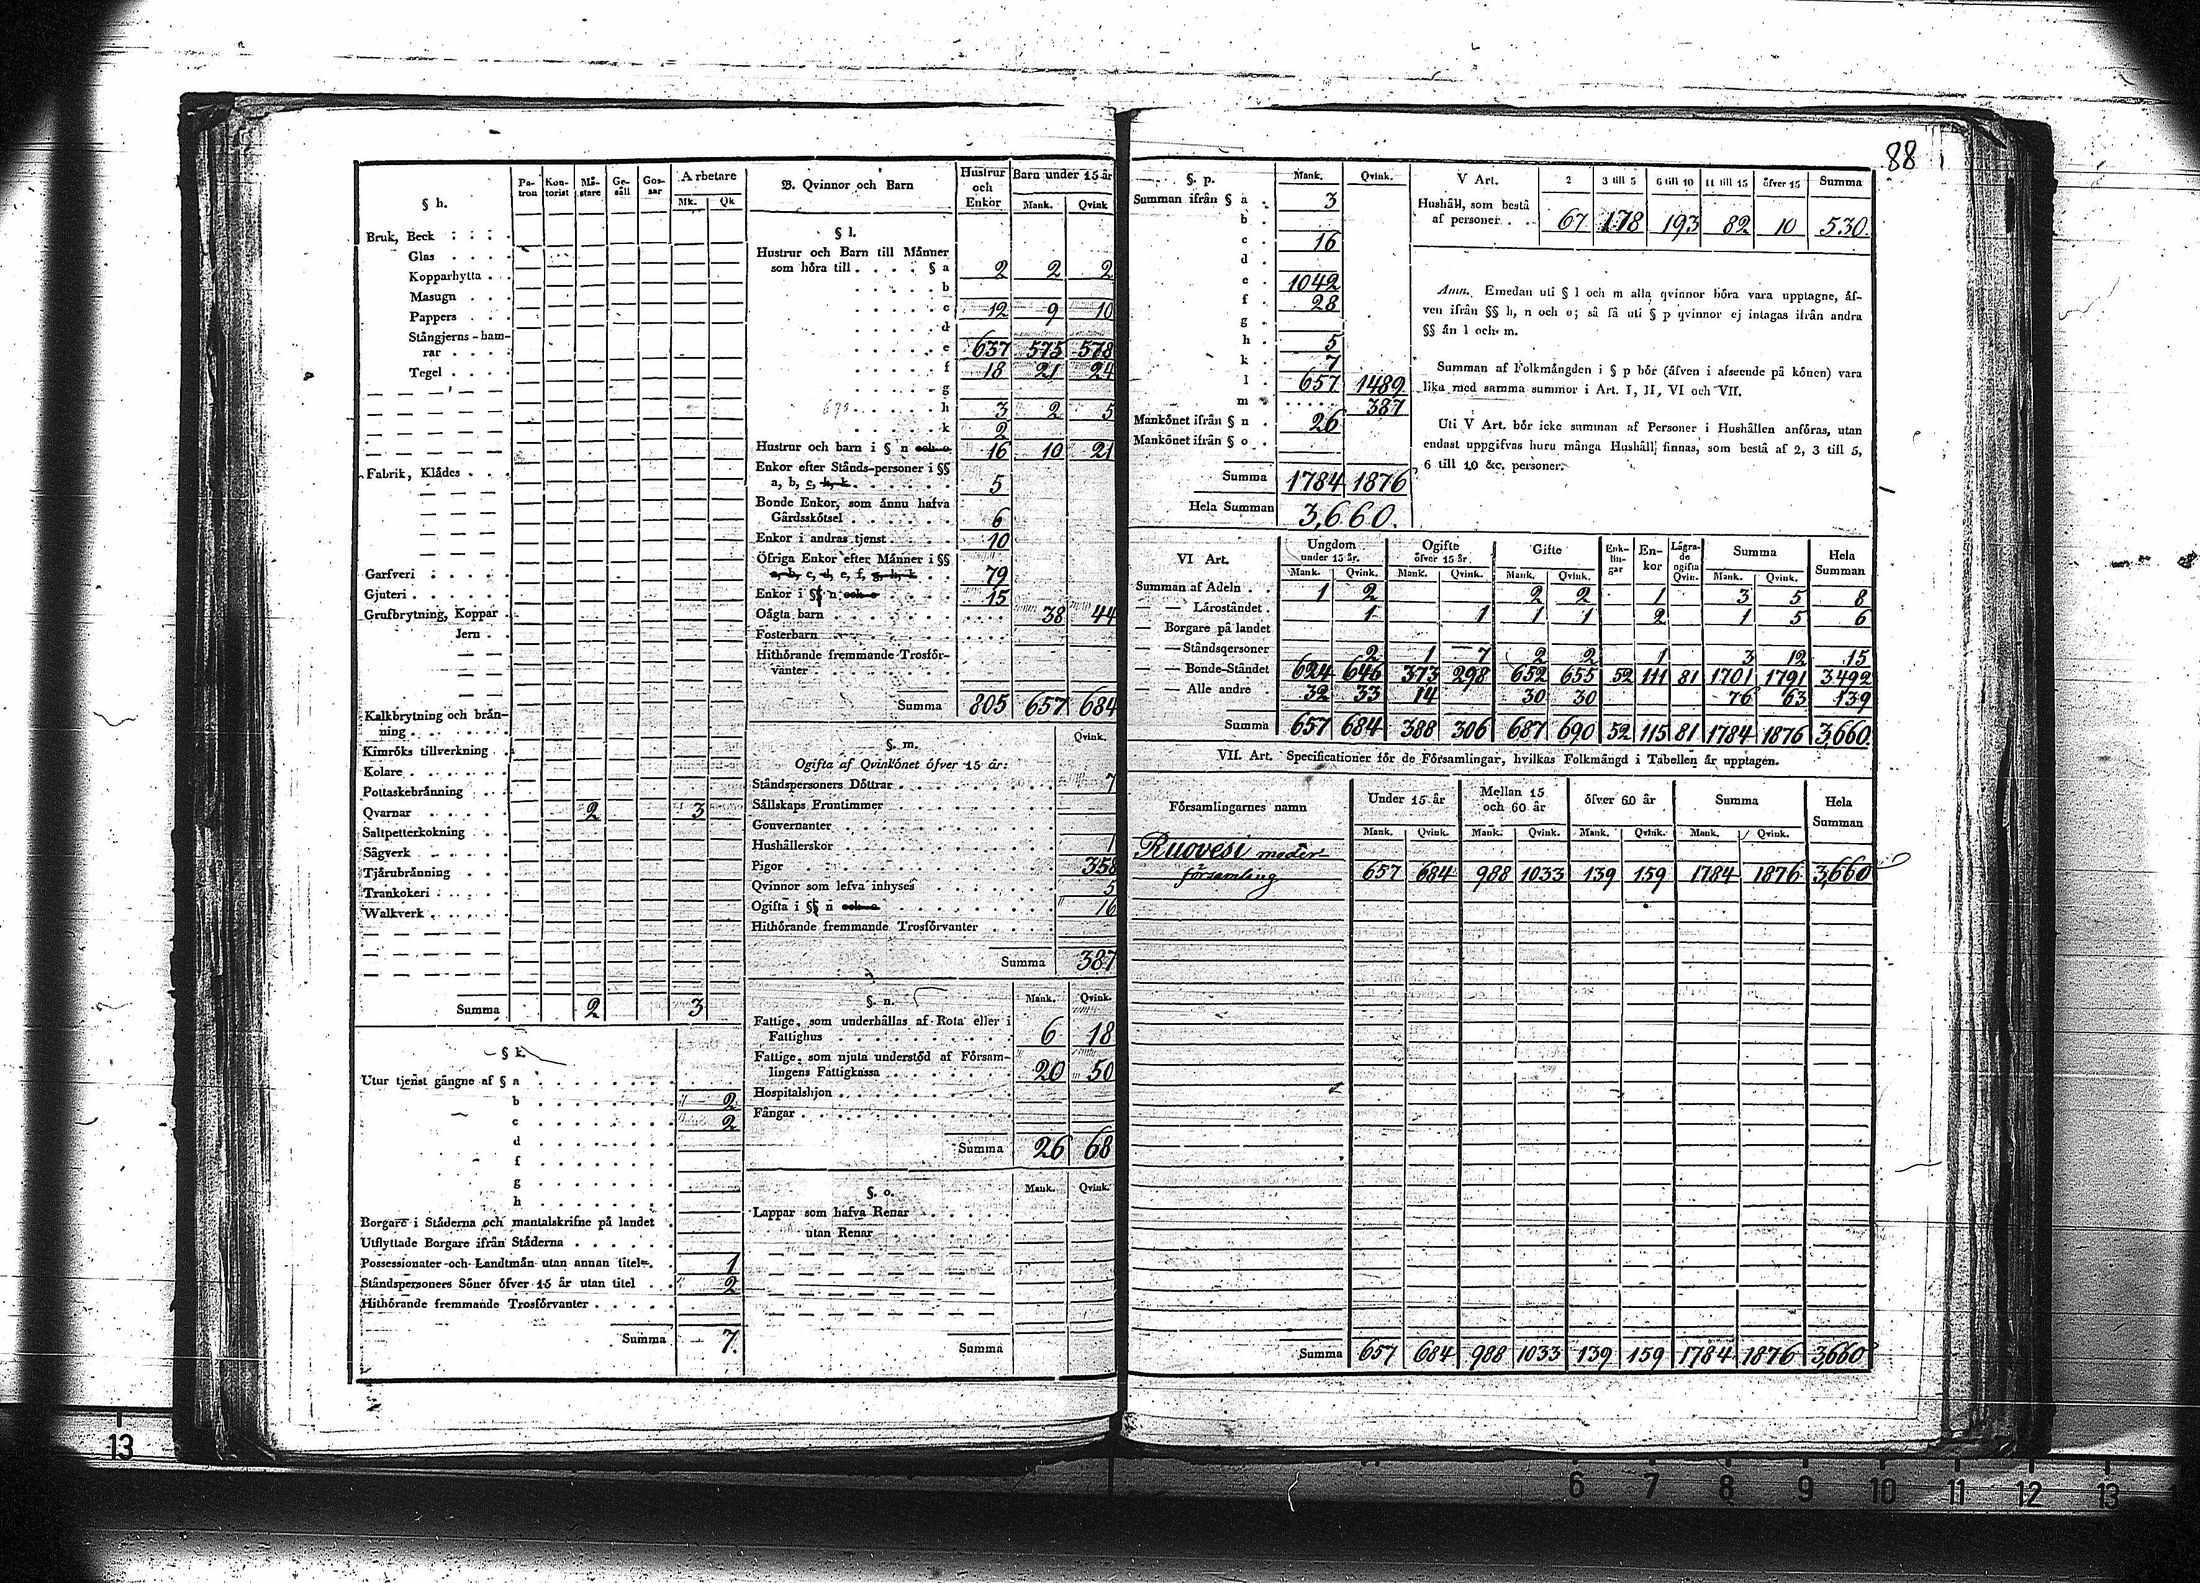 88
§ h.
Pa-tron Kon-torist Mä-stare Ge-säll Gos-sar Arbetare
Mk. Qk
Bruk, Beck
Glas
Kopparhytta
Masugn
Pappers
Stångjerns-ham-
rar
Tegel
Fabrik, Klådes
Garfveri
Gjuteri
Grufbrytning, Koppar
Jern
Kalkbrytning och brån-
ning
Kimröks tillverkning
Kolare
Pottaskebrånning
Qvarnar 2 3
Saltpetterkokning
Sågverk
Tjårubrånning
Trankokeri
Walkverk
Summa 2 3
§ k.
Utur tjenst gångne af § a
b 2
c 2
d
f
g
h
Borgare i Ståderna och mantalskrifne på landet
Utflyttade Borgare ifrån Ståderna
Possessionater och Landtmån utan annan titel 1
Ståndspersoners Söner öfver 15 år utan titel 2
Hithörande fremmande Trosförvanter
Summa 7.
B. Qvinnor och Barn Hustrur och Enkor Barn under 15 år
Mank. Qvink
§ l.
Hustrur och Barn till Månner
som höra till § a 2 2 2
b
c 12 9 10
d
e 637 575 578
f 18 21 24
g
h 3 2 5
k 2
Hustrur och barn i § n och o 16 10 21
Enkor efter Stånds-personer i §§
a, b, c, h, k 5
Bonde Enkor, som ånnu hafva
Gårdsskötsel 6
Enkor i andras tjenst 10
Öfriga Enkor efter Månner i §§
a, b, c, d, e, f, g, h, k 79
Enkor i §§ n och o 15
Oågta barn 38 44
Fosterbarn
Hithörande fremmande Trosför-
vanter
Summa 805 657 684
§. m. Qvink.
Ogifta af Qvinkönet öfver 15 år:
Ståndspersoners Döttrar 7
Sållskaps Fruntimmer
Gouvernanter
Hushållerskor 1
Pigor 358
Qvinnor som lefva inhyses 5
Ogifta i §§ n och o 16
Hithörande fremmande Trosförvanter
Summa 387
§. n. Mank. Qvink.
Fattige, som underhållas af Rota eller i
Fattighus 6 18
Fattige, som njuta understöd af Försam-
lingens Fattigkassa 20 50
Hospitalshjon
Fångar
Summa 26 68
§. o. Mank. Qvink.
Lappar som hafva Renar
utan Renar
Summa
§. p. Mank. Qvink.
Summan ifrån § a 3
b
c 16
d
e 1042
f 28
g
h 5
k 7
l 657 1489
m 387
Mankönet ifrån § n 26
Mankönet ifrån § o
Summa 1784 1876
Hela Summan 3,660.
V Art. 2 3 till 5 6 till 10 11 till 15 öfver 15 Summa
Hushåll, som bestå
af personer 67 178 193 82 10 530.
Anm. Emedan uti § l och m alla qvinnor böra vara upptagne, åf-
ven ifrån §§ h, n och o; så få uti § p qvinnor ej intagas ifrån andra
§§ ån l och m.
Summan af Folkmångden i § p bör (åfven i afseende på könen) vara
lika med samma summor i Art. I, II, VI och VII.
Uti V Art. bör icke summan af Personer i Hushållen anföras, utan
endast uppgifvas huru många Hushåll finnas, som bestå af 2, 3 till 5,
6 till 10 &c. personer.
VI Art. Ungdom under 15 år. Ogifte öfver 15 år. Gifte Enk-lin-gar En-kor Lågra-de ogifta Qvin. Summa Hela Summan
Mank. Qvink. Mank. Qvink. Mank. Qvink. Mank. Qvink.
Summan af Adeln 1 2 2 2 1 3 5 8
— — Låroståndet 1 1 1 1 2 1 5 6
— Borgare på landet
— — Ståndspersoner 2 1 7 2 2 1 3 12 15
— — Bonde-Ståndet 624 646 373 298 652 655 52 111 81 1701 1791 3492
— — Alle andre 32 33 14 30 30 76 63 139
Summa 657 684 388 306 687 690 52 115 81 1784 1876 3,660.
VII. Art. Specificationer för de Församlingar, hvilkas Folkmångd i Tabellen år upptagen.
Församlingarnes namn Under 15 år Mellan 15 och 60 år öfver 60 år Summa Hela Summan
Mank. Qvink. Mank. Qvink. Mank. Qvink. Mank. Qvink.
Ruovesi moder-
församling 657 684 988 1033 139 159 1784 1876 3,660
Summa 657 684 988 1033 139 159 1784 1876 3,660
13 6 7 8 9 10 11 12 13